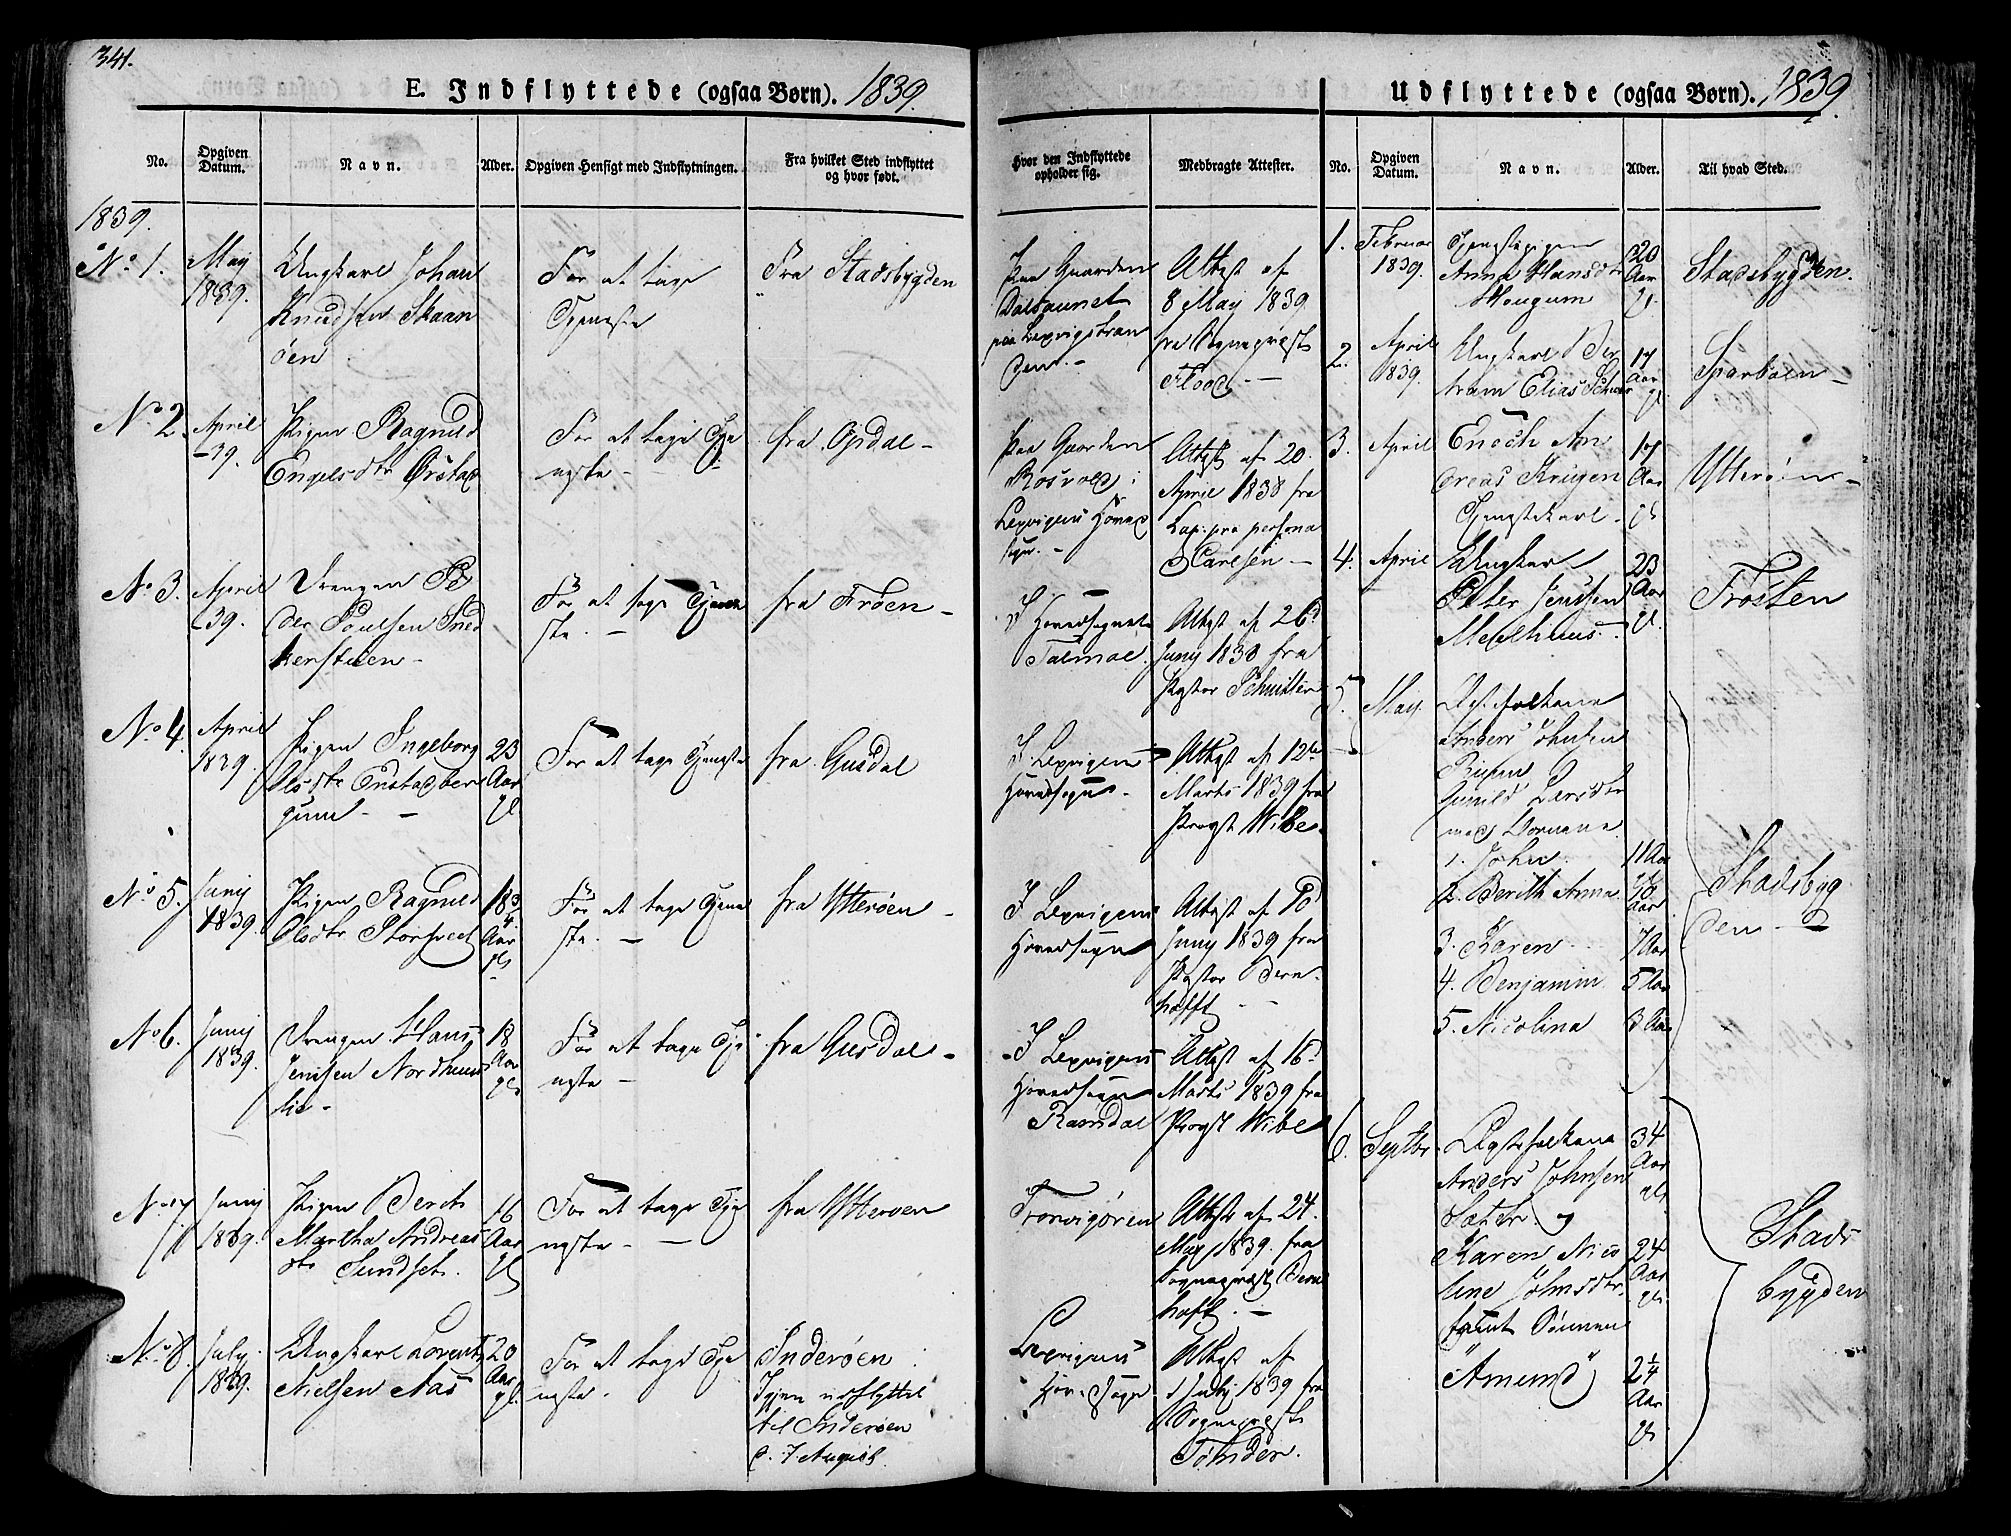 341.
E. Indflyttede (ogsaa Børn). 1839.
No.
Opgiven Datum.
Navn.
Alder.
Opgiven Hensigt med Indflytningen.
Fra hvilket Sted indflyttet og hvor født.
Hvor den Indflyttede opholder sig.
Medbragte Attester.
1839.
No 1.
May
1839.
Ungkarl Johan
Knudsen Skaan
öen
For at tage
Tjeneste
Fra Stadsbygden
Paa Gaarden
Dalsaunet
paa Lexvigstran
den. -
Attest af
8 May 1839.
fra Sognepræst
Flood. -
No 2.
April
-39.
Pigen Ragnild
Engelsdtr Ørstad
For at tage Tje
neste -
fra Opdal -
Paa Gaarden
Rosvold i
Lexvigens Hoved
sogn. -
Attest af 20.
April 1838 fra
Cap: pro persona
Carlsen -
No 3.
April
39.
Drengen Pe
der Poulsen Sned
kerstuen -
For at tage Tjene
ste. -
fra Frøen -
I Hovedsognet
Attest af 26d
Juny 1838 fra
Pastor Schnitler
No 4.
April
1839.
Pigen Ingeborg
Olsdtr Onstadber
gum - -
23
Aar
gl.
For at tage Tjeneste
fra Gusdal
I Lexvigens
Hovedsogn -
Attest af 12te
Marts 1839 fra
Provst Wibe.
No 5.
Juny
1839.
Pigen Ragnild
Olsdtr Storhved
18 3/4
Aar
gl.
For at tage Tjene
ste. -
fra Ytterøen -
I Lexvigens
Hovedsogn
Attest af
Juny 1839 fra
Pastor Bern
hofft -
No 6.
Juny
1839.
Drengen Hans
Jensen Nordhuus
lie -
18
Aar
gl.
For at tage Tje
neste -
fra Gusdal -
I Lexvigens
Hovedsogn
Ramsdal
Attest af 16d
Marts 1839 fra
Provst Wibe
No 7
Juny
1839.
Pigen Berit
Martha Andreas
dtr Sundset.
16
Aar
gl.
For at tage Tje
neste - -
fra Ytterøen
Tronvigören
Attest af 24.
May 1839. fra
Sognepræst Bern
hoft. -
No 8.
July
1839.
Ungkarl Lorents
Nielsen Aas
20
Aar
gl.
For at tage Tje
neste -
Inderøen
Igjen udflyttet
til Inderøen
d. 7 August
Lexvigens
Hov. Sogn
Attest af
July 1839 fra
Sognepræst
Tønder.
Udflyttede (ogsaa Børn). 1839.
No.
Opgiven Datum.
Navn.
Alder.
Til hvad Sted.
1.
Februar
1839.
Tjenstepigen
Anna Hansdtr
Hougum
20
Aar
gl.
Stadsbygden.
2.
April
1839.
Ungkarl Ber
tram Elias
17
Aar
gl.
Sparboen -
3.
April
Enoch An
dreas Krügen
Tjenstekarl -
17
Aar
gl.
Ytterøen -
4.
April
Ungkarl
Peter Jensen
Meelhuus. -
23
Aar
gl.
Frosten
5.
May.
Ægtefolkene
Anders Johnsen
Gunild Larsdtr
med Børnene
1. John 11 Aar
2. Berith Anna 10 Aar
3. Karen 7 Aar
4. Benjamin 5 Aar
5. Nicolina 3 Aar
Stadsbyg
den -
6.
Septbr.
Ægtefolkene
Anders Johnsen
og
Karen Nico
line Johnsdtr
samt Sønnen
"Amund"
34
Aar
gl.
24
Aar
gl.
2 1/4
Aar
gl.
Stads
bygden